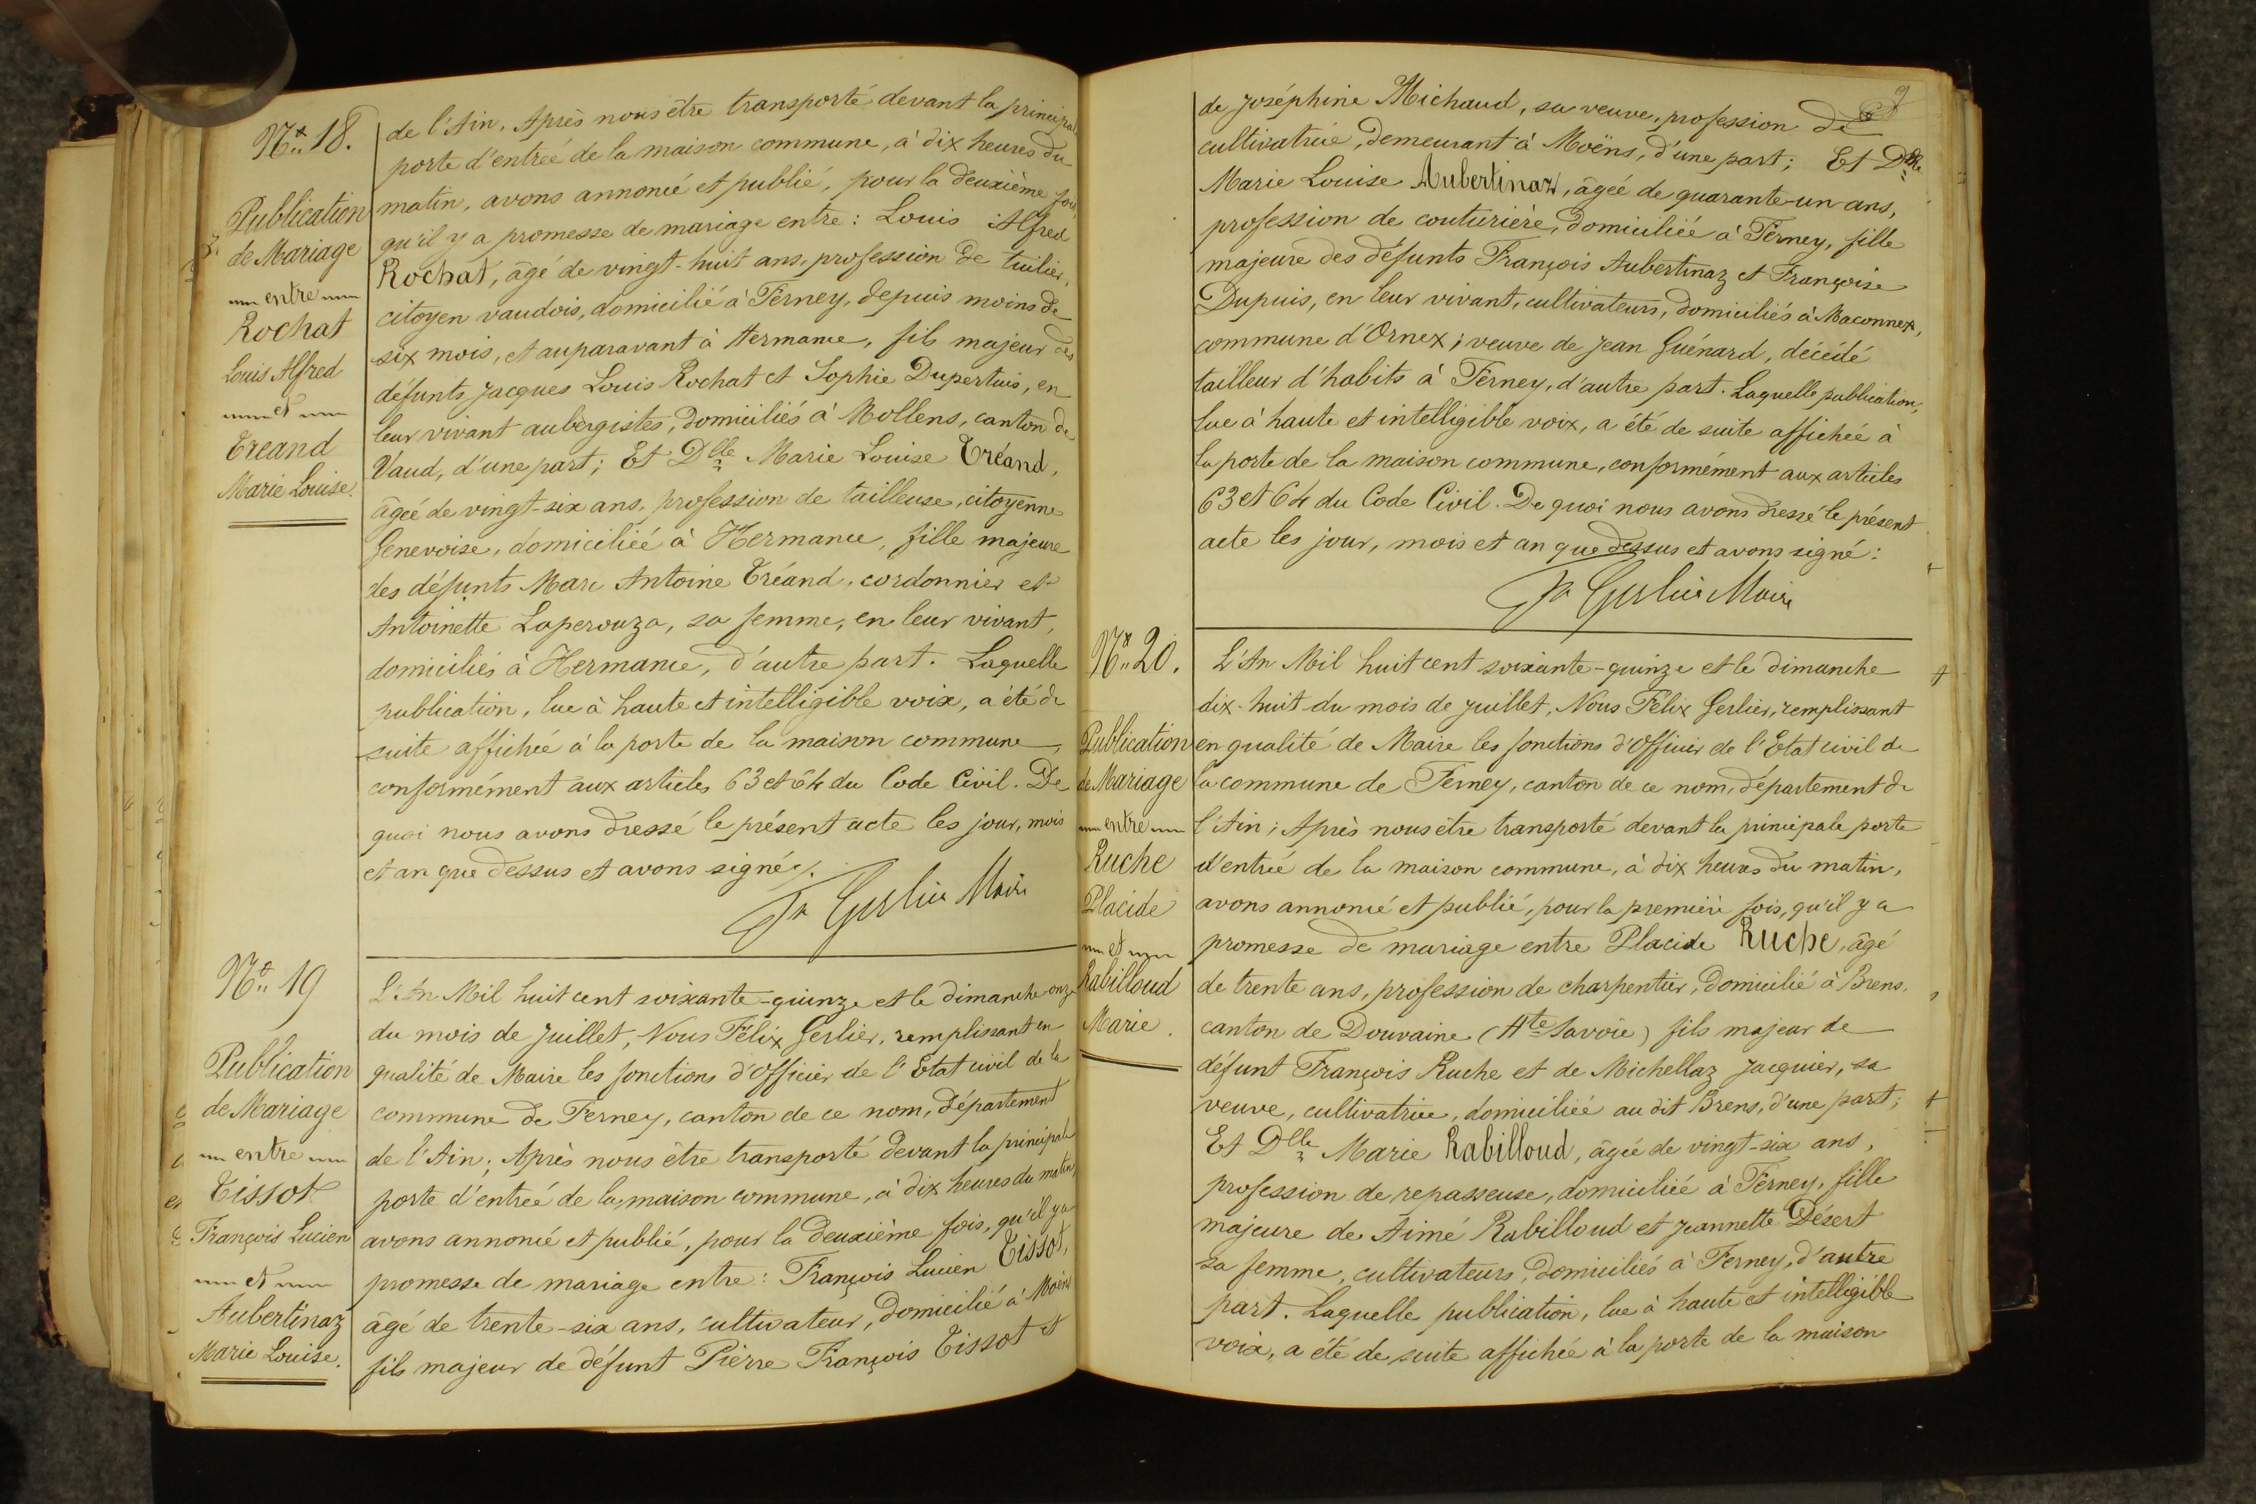 Nº 18.
Publication
de Mariage
entre
Rochat
Louis Alfred
et
Tréand
Marie Louise.
de l'Ain. Après nous être transporté devant la principale
porte d'entreé de la maison commune, à dix heures du
matin, avons annoncé et publié, pour la deuxième fois,
qu'il y a promesse de mariage entre : Louis Alfred
Rochat, âgé de vingt-huit ans, profession de tuilier,
citoyen vaudois, domicilié à Ferney, depuis moins de
six mois, et auparavant à Hermance, fils majeur des
défunts Jacques Louis Rochat et Sophie Dupertuis, en
leur vivant aubergistes, domiciliés à Mollens, canton de
Vaud, d'une part ; Et Dlle Marie Louise Tréand,
âgeé de vingt-six ans, profession de tailleuse, citoyenne
Genevoise, domiciliée à Hermance, fille majeure
des défunts Marc Antoine Tréand, cordonnier et
Antoinette Laperouza, sa femme, en leur vivant,
domiciliés à Hermance, d'autre part. Laquelle
publication, lue à haute et intelligible voix, a été de
suite affichée à la porte de la maison commune,
conformément aux articles 63 et 64 du Code Civil. De
quoi nous avons dressé le présent acte les jour, mois
et an que dessus et avons signé ./.
Fx Gerlier Maire
Nº 19
Publication
de Mariage
entre
Tissot
François Lucien
et
Aubertinaz
Marie Louise.
L'An Mil huit cent soixante-quinze et le dimanche onze
du mois de Juillet, Nous Félix Gerlier, remplissant en
qualité de Maire les fonctions d'Officier de l'Etat civil de la
commune de Ferney, canton de ce nom, département
de l'Ain ; Après nous être transporté devant la principale
porte d'entreé de la maison commune, à dix heures du matin,
avons annoncé et publié, pour la deuxième fois, qu'il y a
promesse de mariage entre : François Lucien Tissot,
âgé de trente-six ans, cultivateur, domicilié à Moëns
fils majeur de défunt Pierre François Tissot et
de Joséphine Michaud, sa veuve, profession de
cultivatrice, demeurant à Moëns, d'une part ; Et Dlle
Marie Louise Aubertinaz, âgeé de quarante-un ans,
profession de couturière, domiciliée à Ferney, fille
majeure des défunts François Aubertinaz et Françoise
Dupuis, en leur vivant, cultivateurs, domiciliés à Maconnex,
commune d'Ornex ; veuve de Jean Guénard, décédé
tailleur d'habits à Ferney, d'autre part. Laquelle publication,
lue à haute et intelligible voix, a été de suite affichée à
la porte de la maison commune, conformément aux articles
63 et 64 du Code Civil. De quoi nous avons dressé le présent
acte les jour, mois et an que dessus et avons signé :
Fx Gerlier Maire
Nº 20.
Publication
de Mariage
entre
Ruche
Placide
et
Rabilloud
Marie.
L'An Mil huit cent soixante-quinze et le dimanche
dix-huit du mois de Juillet, Nous Félix Gerlier, remplissant
en qualité de Maire les fonctions d'Officier de l'Etat civil de
la commune de Ferney, canton de ce nom, département de
l'Ain ; Après nous être transporté devant la principale porte
d'entrée de la maison commune, à dix heures du matin,
avons annoncé et publié, pour la première fois, qu'il y a
promesse de mariage entre Placide Ruche, âgé
de trente ans, profession de charpentier, domicilié à Brens,
canton de Douvaine (Hte Savoie) fils majeur de
défunt François Ruche et de Michellaz Jacquier, sa
veuve, cultivatrice, domiciliée au dit Brens, d'une part ;
Et Dlle Marie Rabilloud, âgée de vingt-six ans,
profession de repasseuse, domiciliée à Ferney, fille
majeure de Aimé Rabilloud et Jeannette Désert
sa femme, cultivateurs, domiciliés à Ferney, d'autre
part. Laquelle publication, lue à haute et intelligible
voix, a été de suite affichée à la porte de la maison